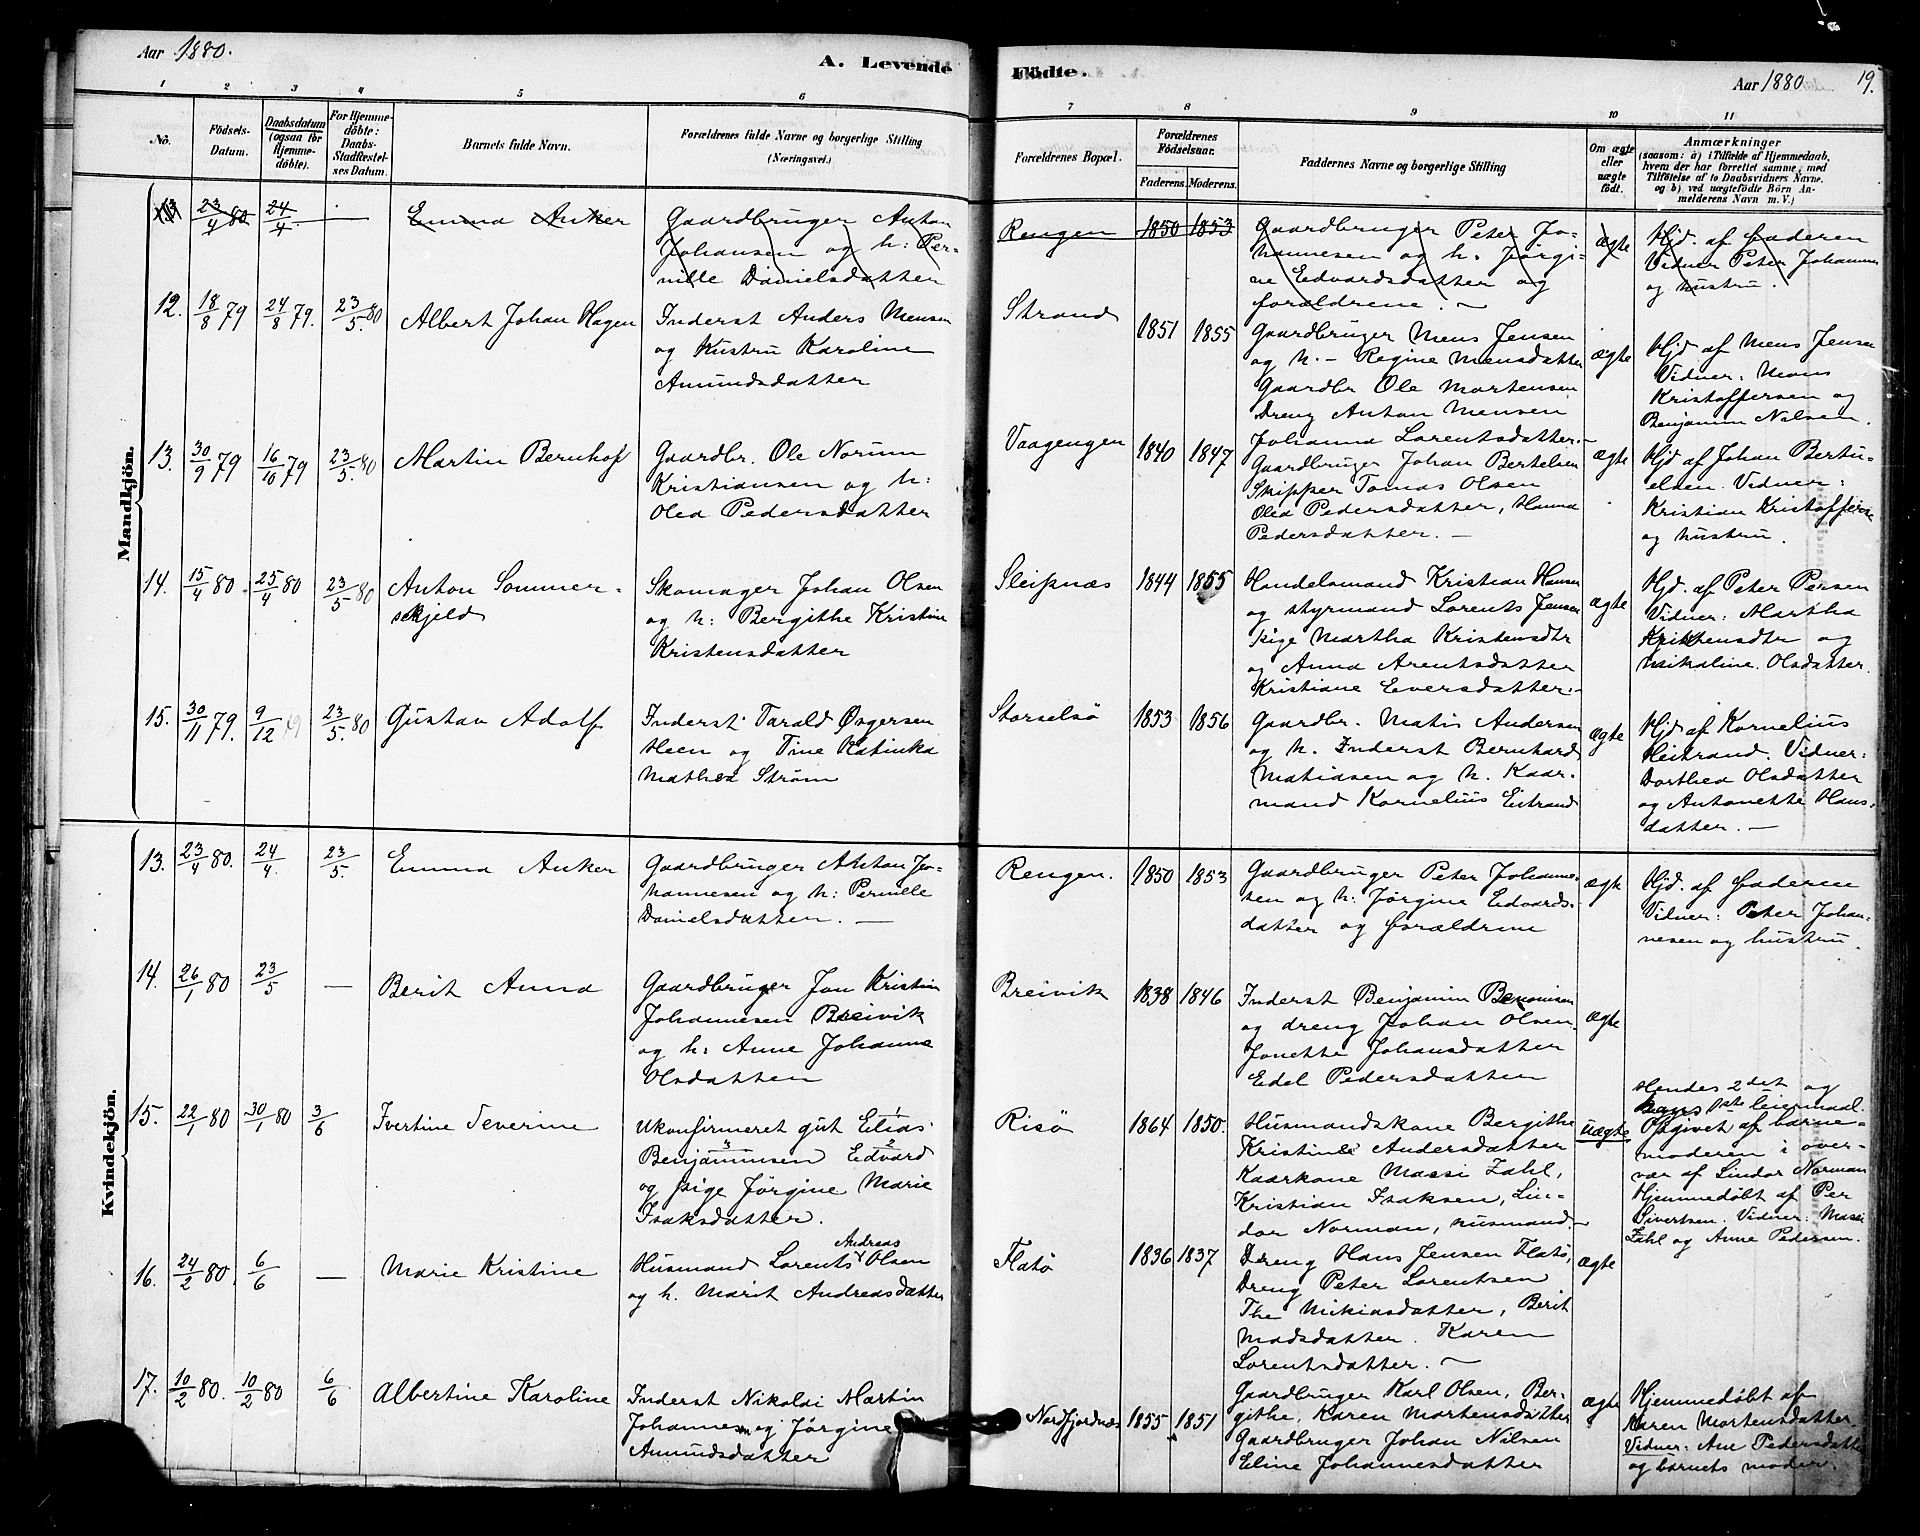 Aar 1880.
A. Levende
1 2 3 4 5 6
No.
Födsels-
Datum.
Daabsdatum
(ogsaa for
Hjemme-
döbte).
For Hjemme-
döbte:
Daabs-
Stadfæstel-
ses Datum.
Barnets fulde Navn.
Forældrenes fulde Navne og borgerlige Stilling
(Næringsvei.)
Mandkjön.
23/4 80 24/4 — Emma Anker Gaardbruger Anton
Johansen og h: Per-
nille Danielsdatter
12. 18/8 79 24/8 79. 23/5 80 Albert Johan Hagen Inderst Anders Mensen
og Hustru Karoline
Amundsdatter
13. 30/9 79 16/10 79 23/5 80 Martin Bernhof Gaardbr. Ole Norum
Kristiansen og h:
Olea Pedersdatter
14. 15/4 80. 25/4 80 23/5 80 Anton Sommer-
skjeld
Skomager Johan Olsen
og h: Bergithe Kristine
Kristensdatter
15. 30/11 79. 9/12 79 23/5 80 Gustav Adolf Inderst Tarald Øigersen
Heen og Tine Katinka
Mathea Strøm
Kvindekjön.
13. 23/4 80. 24/4. 23/5. Emma Anker Gaardbruger Anton Jo-
hannesen og h: Pernille
Danielsdatter. —
14. 26/1 80 23/5 — Berit Anna Gaardbruger Jon Kristian
Johannesen Breivik
og h: Anne Johanna
Olsdatter
15. 22/1 80 30/1 80 3/6 Ivertine Severine Ukonfirmeret gut Elias 1
Benjaminsen 3 Edvard 2
og pige Jørgine Marie
Isaksdatter.
16. 24/2 80. 6/6 — Marie Kristine Husmand Lorents Andreas Olsen
og h. Marit Andreasdatter
17. 10/2 80. 10/2 80 6/6 Albertine Karoline Inderst Nikolai Martin
Johannesen og Jørgine
Amundsdatter
Födte.
Aar 1880 19.
7 8 9 10 11
Forældrenes Bopæl.
Forældrenes
Födselsaar.
Faderens. Moderens.
Faddernes Navne og borgerlige Stilling
Om ægte
eller
uægte
födt.
Anmærkninger
(saasom: a) i Tilfælde af Hjemmedaab,
hvem der har forrettet samme, med
Tilföielse af to Daabsvidners Navne.
og b) ved uægtefödte Börn An-
melderens Navn m. V.)
Rengen 1850 1853 Gaardbruger Peter Jo-
hannesen og h. Jørgi-
ne Edvardsdatter og
forældrene. —
ægte
Hjd. af Faderen
Vidner Peter Johannes
og hustru.
Strand 1851 1855 Gaardbruger Mens Jensen
og h. – Regine Mensdatter
Gaardbr Ole Mortensen
Dreng Anton Mensen
Johanna Lorentsdatter. —
ægte
Hjd af Mens Jensen
Vidner: Mons
Kristoffersen og
Benjamin Nilsen.
Vaagengen 1840 1847 Gaardbruger Johan Bertelsen
Skipper Tomas Olsen
Olea Pedersdatter, Hanna
Pedersdatter. —
ægte
Hjd af Johan Bertu-
elsen. Vidner:
Kristian Kristoffersen
og hustru.
Sleipnæs 1844 1855 Handelsmand Kristian Hansen
og styrmand Lorents Jensen
pige Martha Kristensdtr
og Anna Arentsdatter
Kristiane Eversdatter. —
ægte
Hjd. af Peter Persen
Vidner: Martha
Kristensdtr og
Nikoline Olsdatter.
Storselsø 1853 1856 Gaardbr. Matis Andersen
og h. Inderst Bernhard
Matiasen og h. Kaar-
mand Kornelius Eistrand
ægte
Hjd af Kornelius
Heistrand. Vidner:
Dorthea Olsdatter
og Antonette Hans-
datter. —
Rengen. 1850 1853 Gaardbruger Peter Johanne-
sen og h: Jørgine Edvards-
datter og forældrene
ægte
Hjd. af Faderen
Vidner: Peter Johan-
nesen og hustru.
Breivik 1838 1846 Inderst Benjamin Benonisen
og dreng Johan Olsen.
Jonette Johansdatter
Edel Pedersdatter
ægte
Risø 1864 1850. Husmandskone Bergithe
Kristine Andersdatter
Kaarkone Massi Zahl,
Kristian Isaksen, Lin-
dor Norman, husmand. —
uægte
Hendes 2det og
hans 1ste leiermaal.
Opgivet af barne-
moderen i over-
vær af Lindor Norman
Hjemmedøbt af Per
Sivertsen. Vidner: Massi
Zahl og Anne Pedersen.
Flatø 1836 1837 Dreng Hans Jensen Flatø,
Dreng Peter Lorentsen
Thea Mikiasdatter, Berit
Madsdatter. Karen
Lorentsdatter. —
ægte
Nordfjordnæs 1855 1851 Gaardbruger Karl Olsen, Ber-
githe, Karen Mortensdatter
Gaardbruger Johan Nilsen
Eline Johannesdatter
ægte
Hjemmedøbt af
Karen Mortensdatter.
Vidner: Ane Pedersdatter
og barnets moder.